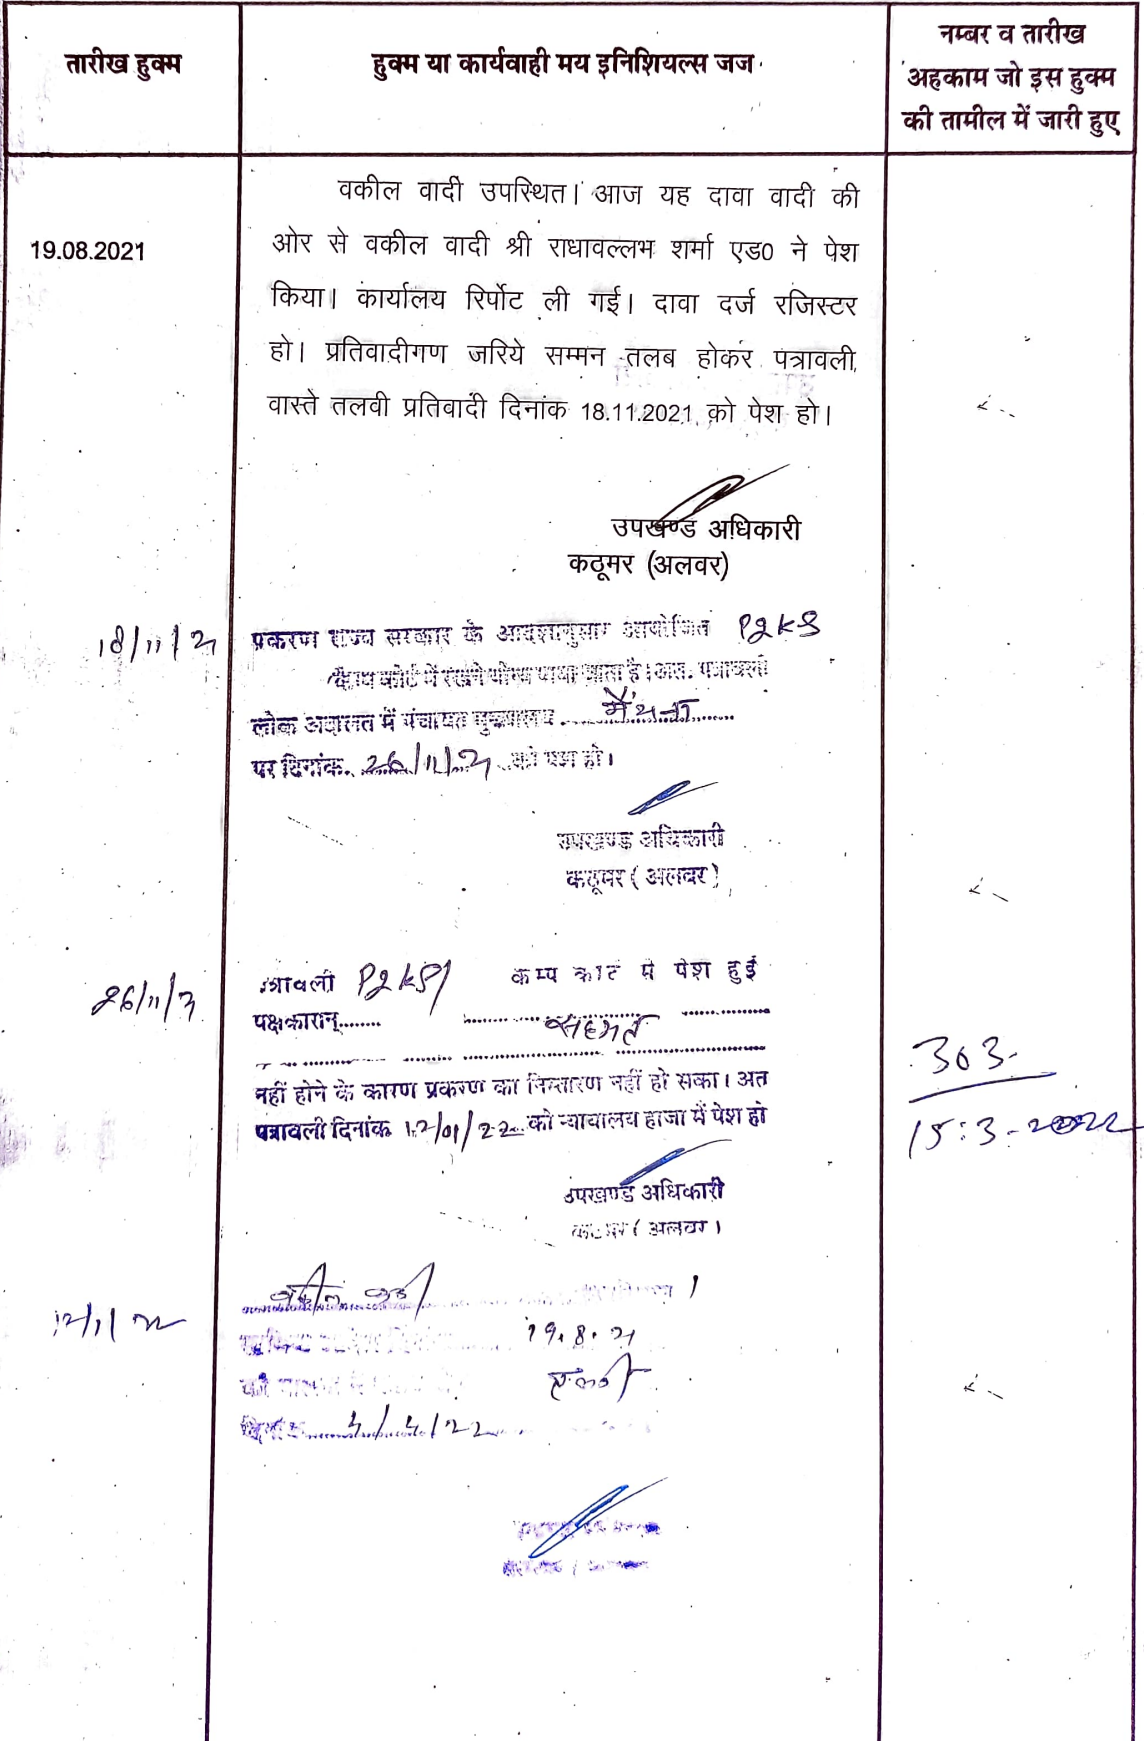 तारीख हुक्म
हुक्म या कार्यवाही मय इनिशियल्स जज
नम्बर व तारीख
अहकाम जो इस हुक्म
की तामील में जारी हुए
19.08.2021
वकील वादी उपस्थित। आज यह दावा वादी की
ओर से वकील वादी श्री राधावल्लभ शर्मा एड0 ने पेश
किया। कार्यालय रिर्पोट ली गई। दावा दर्ज रजिस्टर
हो। प्रतिवादीगण जरिये सम्मन तलब होकर पत्रावली
वास्ते तलवी प्रतिवादी दिनांक 18.11.2021 को पेश हो।
उपखण्ड अधिकारी
कठूमर (अलवर)
18/11/21
प्रकरण राज्य सरकार के आदेशानुसार आयोजित PGKS
कैम्प कोर्ट में रखने योग्य पाया जाता है। अत. पत्रावली
लोक अदालत में पंचायत मुख्यालय
पर दिनांक. 26/11/21 को पेश हो।
उपखण्ड अधिकारी
कठूमर ( अलवर )
26/11/21
पत्रावली PGKS कैम्प कोर्ट में पेश हुई
पक्षकारान्........ सहमत
नहीं होने के कारण प्रकरण का निस्तारण नहीं हो सका। अत
पत्रावली दिनांक 12/01/22 को न्यायालय हाजा में पेश हो
303
15.3.2022
उपखण्ड अधिकारी
कठूमर ( अलवर )
12/1/22
वकील वादी
19.8.21
दिनांक 4/4/22